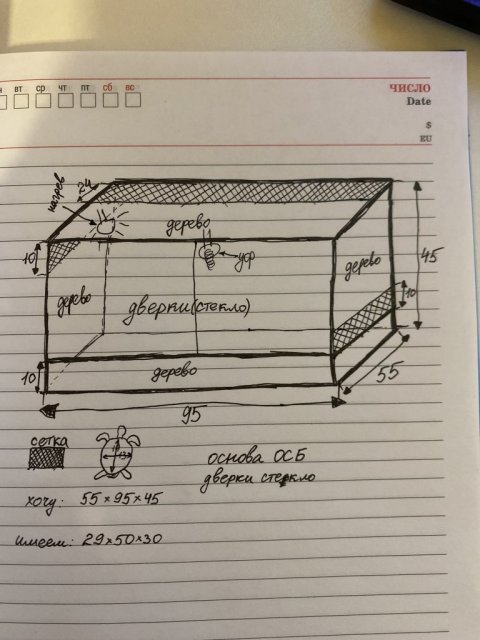 вт ср чт пт сб вс
ЧИСЛО
Date
$
EU
нагрев
24
дерево
10
уф
дерево
45
дерево
10
дверки(стекло)
10
дерево
55
95
сетка
13
основа ОСБ
дверки стекло
хочу: 55×95×45
имеем: 29×50×30